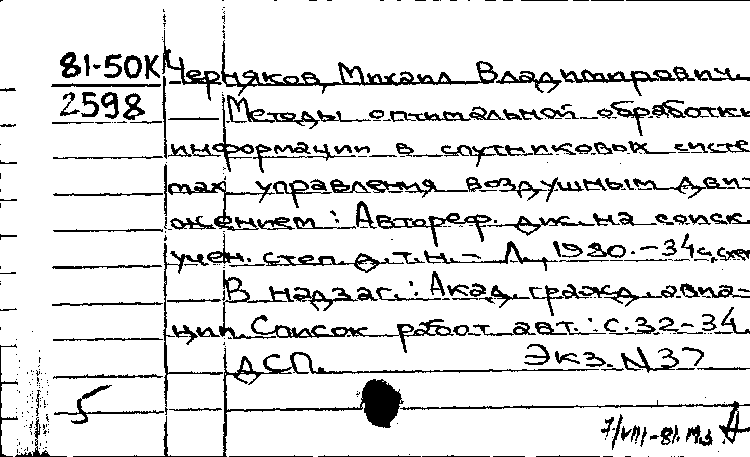 81-50К Черняков, Михаил Владимирович.
2598 Методы оптимальной обработки
информации в спутниковых систе
мах управления воздушным дви-
жением: Автореф. дис. на соиск
учен. степ. д.т.н. - Л., 1980. - 34с, схем
В надзаг.: Акад. гражд. авиа-
ции. Список работ авт.: с. 32-34
ДСП. Экз. N37
5
7/VIII-81.